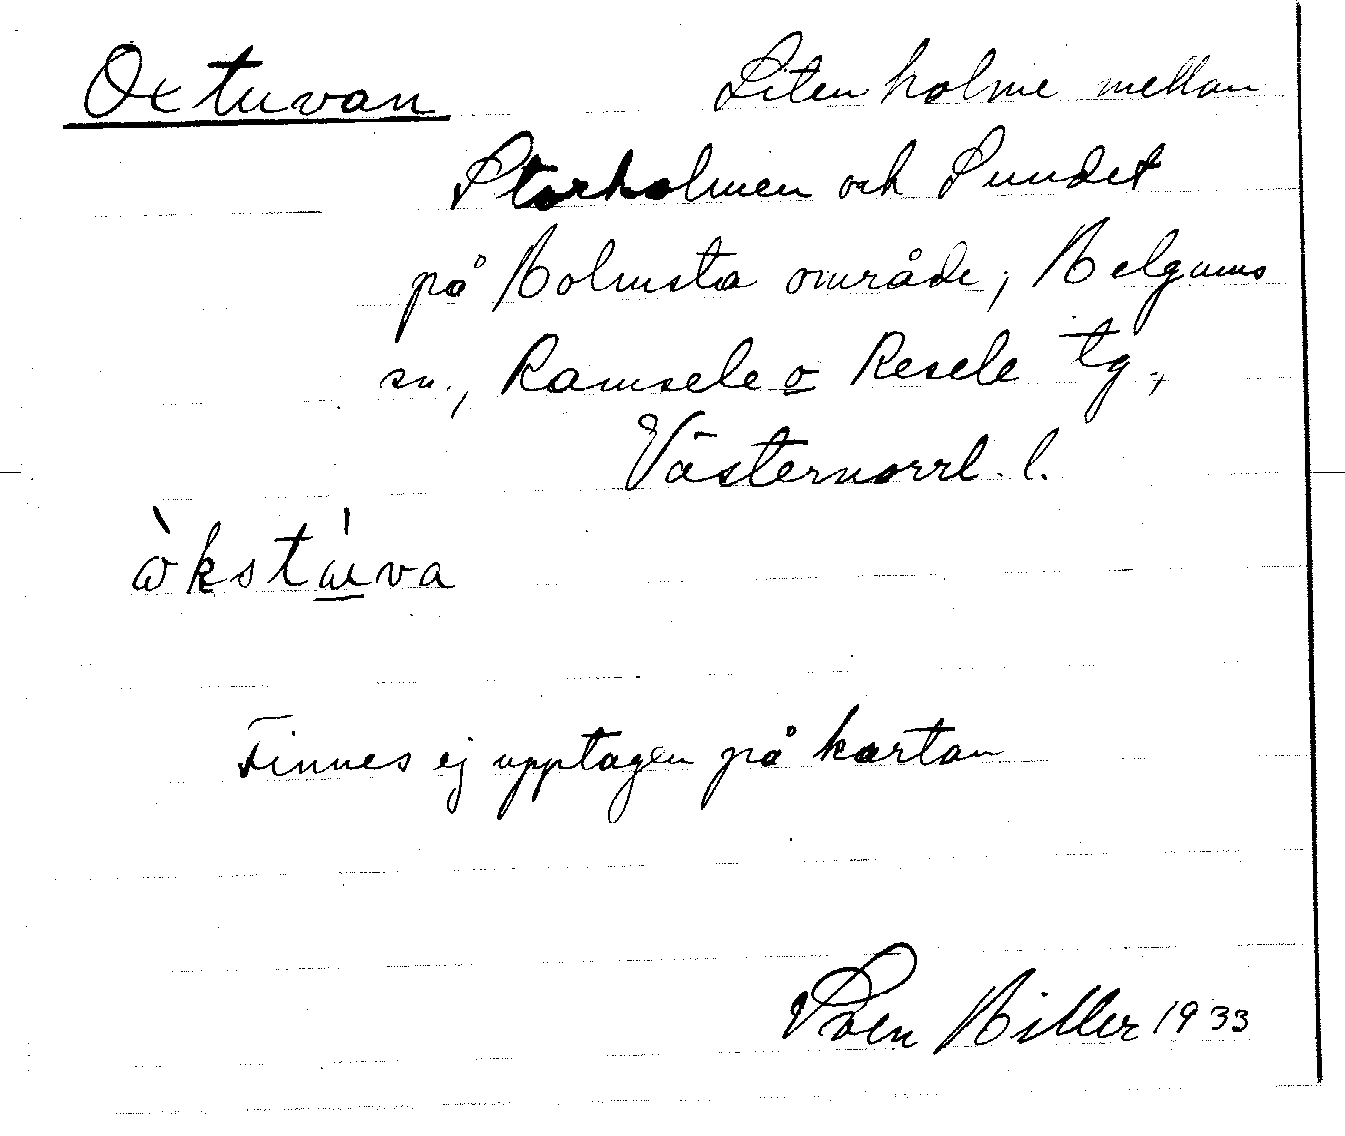 Oxtuvan Liten holme mellan
Storholmen och Sundet
på Holmsta område, Helgums
sn., Ramsele o Resele tg.,
Västernorrl. l.
ò̀kstúva
Finnes ej upptagen på kartan
Sven Hiller 1933